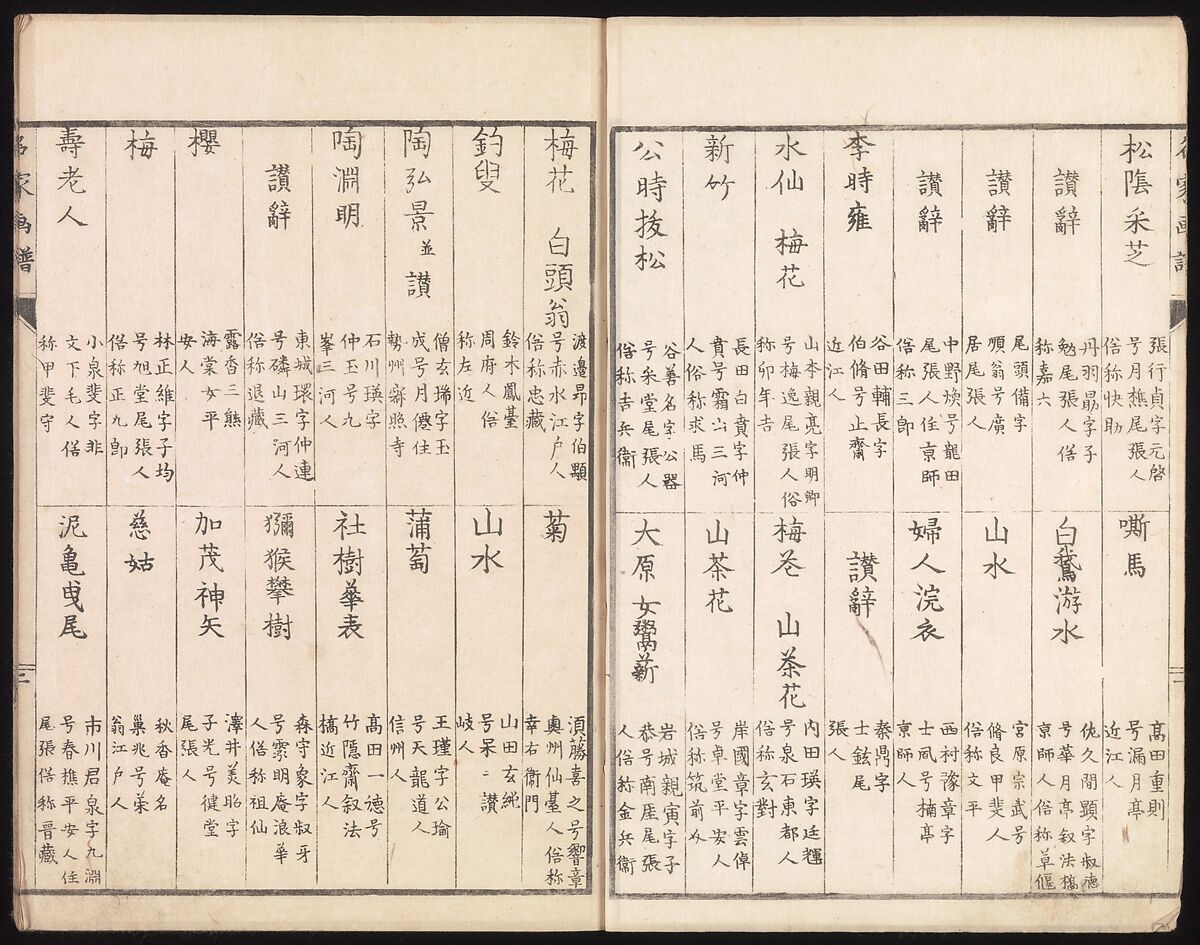 松陰采芝
張行貞字元啓
号月樵尾張人
俗称快助
讃辭
丹羽勗字子
勉尾張人俗
称嘉六
讃辭
尾頭備字
順翁号廣
居尾張人
讃辭
中野煥号龍田
尾張人住京師
俗称三郎
李時雍
谷田輔長字
伯脩号止齋
近江人
水仙 梅花
山本親亮字明卿
号梅逸尾張人俗
称卯年吉
新竹
長田白賁字仲
賁号霜山三河
人俗称求馬
公時抜松
谷善名字公器
号采堂尾張人
俗称吉兵衞
嘶馬
髙田重則
号漏月亭
近江人
白鵞游水
佐久間顕字叔徳
号華月亭叙法橋
京師人俗称草偃
山水
宮原宗武号
脩良甲斐人
俗称文平
婦人浣衣
西村豫章字
士風号楠亭
京師人
讃辭
秦鼎字
士鉉尾
張人
梅花 山茶花
内田瑛字廷璭
号泉石東都人
俗称玄對
山茶花
岸國章字雲倬
号卓堂平安人
俗称筑前介
大原女鬻薪
岩城親寅字子
恭号南厓尾張
人俗称金兵衞
名家画譜
二
梅花 白頭翁
渡邉昂字伯顒
号赤水江戸人
俗称忠藏
釣叟
鈴木鳳臺
周府人俗
称左近
陶弘景並讃
僧玄瑞字玉
成号月僊住
勢州寂照寺
陶淵明
石川瑛字
仲玉号九
峯三河人
讃辭
東城環字仲連
号磷山三河人
俗称退藏
櫻
露香三熊
海棠女平
安人
梅
林正維字子均
号旭堂尾張人
俗称正九郎
壽老人
小泉斐字非
文下毛人俗
称甲斐守
菊
須藤喜之号響章
奥州仙臺人俗称
幸右衞門
山水
山田玄純
号呆〻讃
岐人
蒲萄
王瑾字公瑜
号天龍道人
信州人
社樹華表
髙田一徳号
竹隠齋叙法
橋近江人
獼猴攀樹
森守象字叔牙
号霊明庵浪華
人俗称祖仙
加茂神矢
澤井美昭字
子光号健堂
尾張人
慈姑
秋香庵名
巢兆号菜
翁江戸人
泥亀曳尾
市川君泉字九淵
号春樵平安人住
尾張俗称晋藏
名家画譜
三